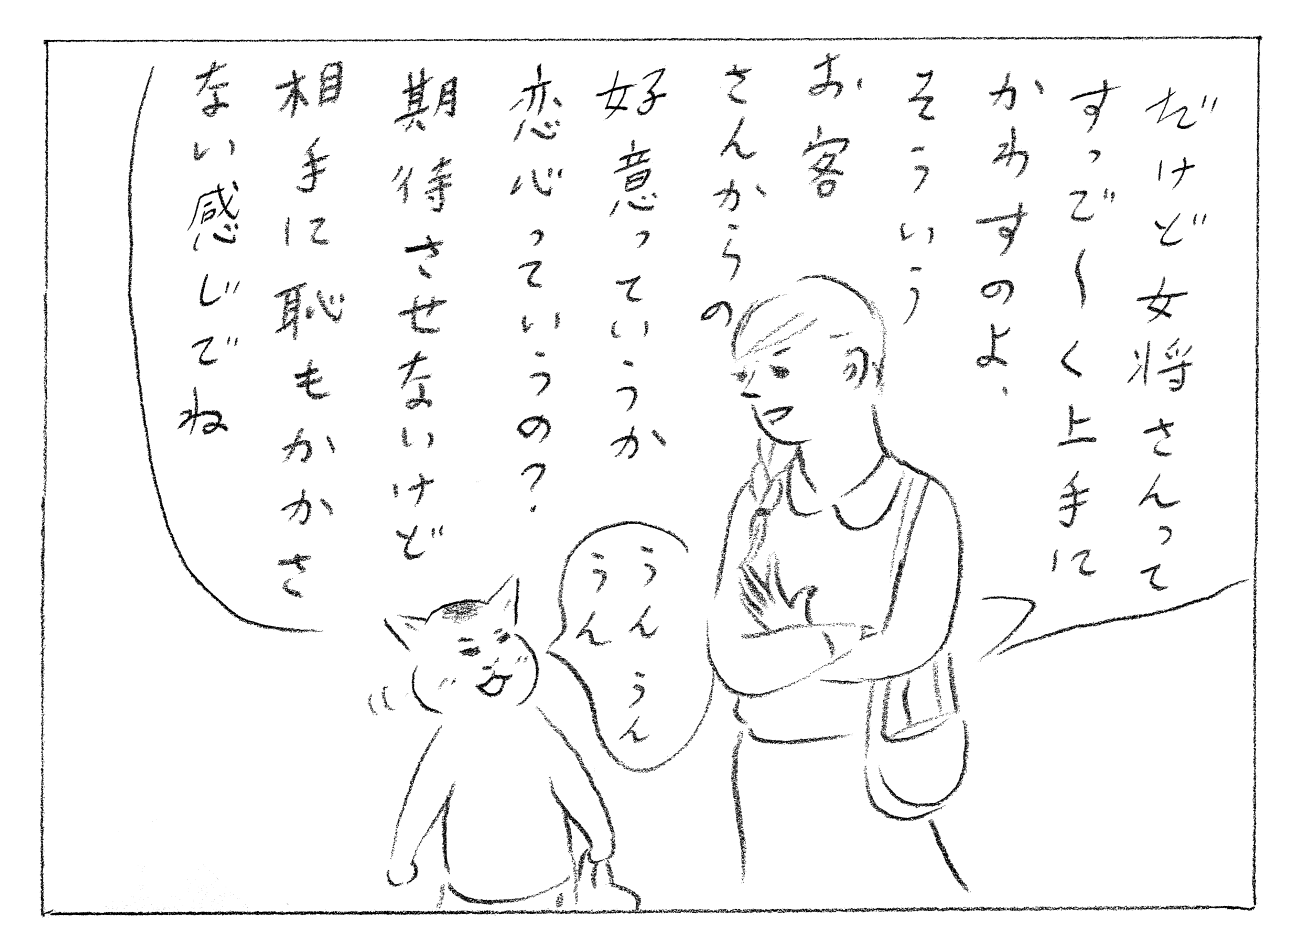 だけど女将さんって
すっで〜く上手に
かわすのよ、
そういう
お客
さんからの
好意っていうか
恋心っていうの?
期待させないけど
相手に恥もかかさ
ない感じでね
うんうん
うん